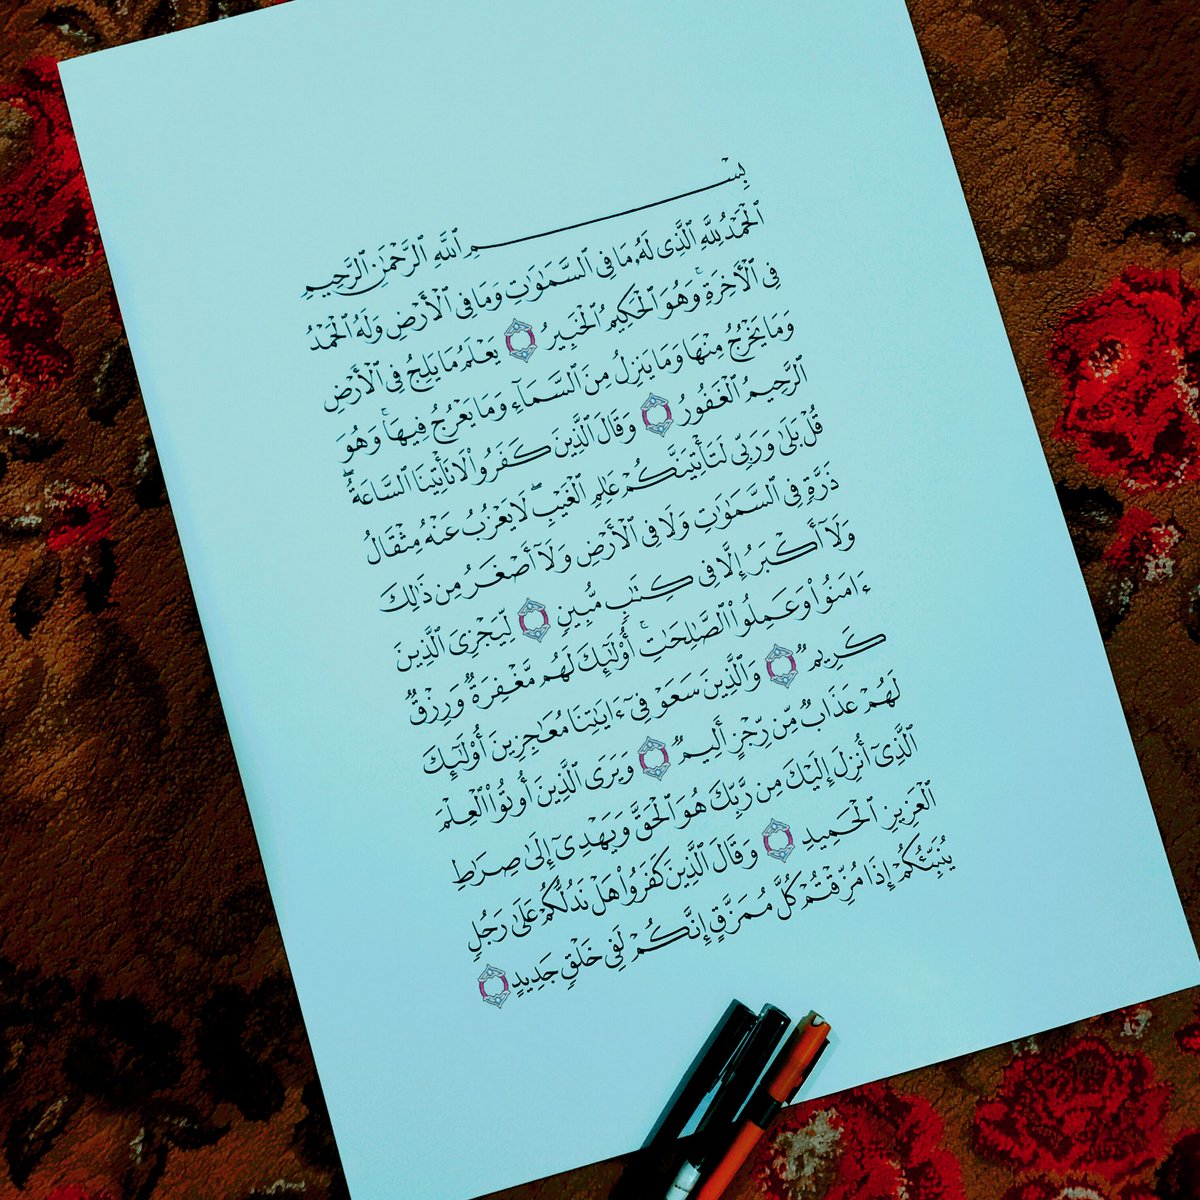 بِسْمِ ٱللَّهِ ٱلرَّحْمَٰنِ ٱلرَّحِيمِ
ٱلْحَمْدُ لِلَّهِ ٱلَّذِى لَهُۥ مَا فِى ٱلسَّمَٰوَٰتِ وَمَا فِى ٱلْأَرْضِ وَلَهُ ٱلْحَمْدُ
فِى ٱلْأَخِرَةِ ۚ وَهُوَ ٱلْحَكِيمُ ٱلْخَبِيرُ يَعْلَمُ مَا يَلِجُ فِى ٱلْأَرْضِ
وَمَا يَخْرُجُ مِنْهَا وَمَا يَنزِلُ مِنَ ٱلسَّمَآءِ وَمَا يَعْرُجُ فِيهَا ۚ وَهُوَ
ٱلرَّحِيمُ ٱلْغَفُورُ وَقَالَ ٱلَّذِينَ كَفَرُوا۟ لَا تَأْتِينَا ٱلسَّاعَةُ ۖ
قُلْ بَلَىٰ وَرَبِّى لَتَأْتِيَنَّكُمْ عَٰلِمِ ٱلْغَيْبِ ۖ لَا يَعْزُبُ عَنْهُ مِثْقَالُ
ذَرَّةٍ فِى ٱلسَّمَٰوَٰتِ وَلَا فِى ٱلْأَرْضِ وَلَآ أَصْغَرُ مِن ذَٰلِكَ
وَلَآ أَكْبَرُ إِلَّا فِى كِتَٰبٍ مُّبِينٍ لِّيَجْزِىَ ٱلَّذِينَ
ءَامَنُوا۟ وَعَمِلُوا۟ ٱلصَّٰلِحَٰتِ ۚ أُو۟لَٰٓئِكَ لَهُم مَّغْفِرَةٌ وَرِزْقٌ
كَرِيمٌ وَٱلَّذِينَ سَعَوْ فِىٓ ءَايَٰتِنَا مُعَٰجِزِينَ أُو۟لَٰٓئِكَ
لَهُمْ عَذَابٌ مِّن رِّجْزٍ أَلِيمٌ وَيَرَى ٱلَّذِينَ أُوتُوا۟ ٱلْعِلْمَ
ٱلَّذِىٓ أُنزِلَ إِلَيْكَ مِن رَّبِّكَ هُوَ ٱلْحَقَّ وَيَهْدِىٓ إِلَىٰ صِرَٰطِ
ٱلْعَزِيزِ ٱلْحَمِيدِ وَقَالَ ٱلَّذِينَ كَفَرُوا۟ هَلْ نَدُلُّكُمْ عَلَىٰ رَجُلٍ
يُنَبِّئُكُمْ إِذَا مُزِّقْتُمْ كُلَّ مُمَزَّقٍ إِنَّكُمْ لَفِى خَلْقٍ جَدِيدٍ